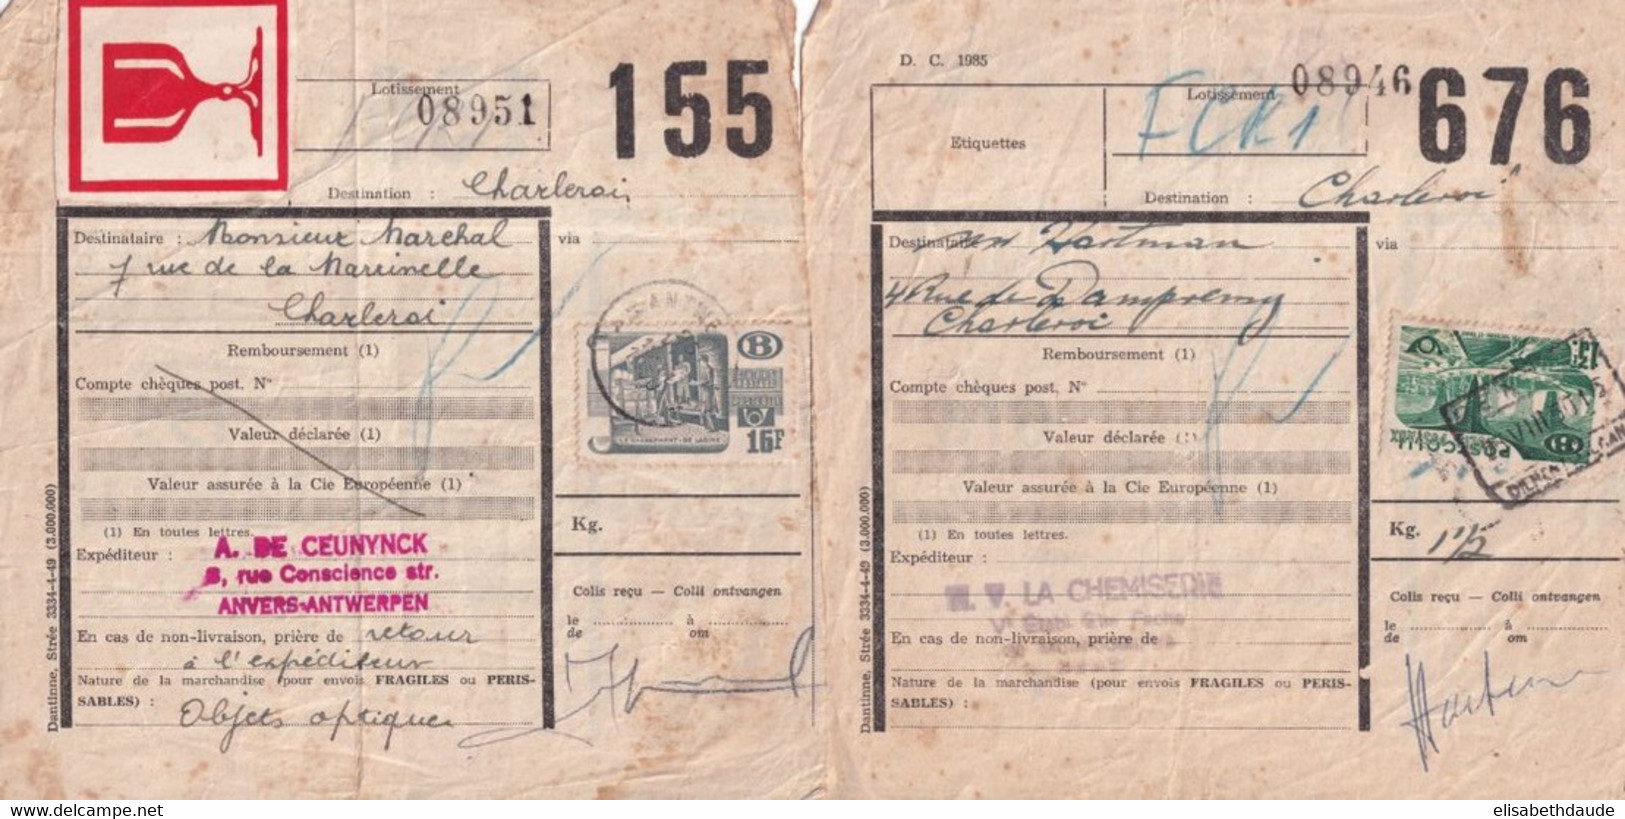 Lotissement
08951
155
Destination : Charleroi
Destinataire : Monsieur Marchal
7 rue de la Marcinelle
Charleroi
via
Remboursement (1)
Compte chèques post. N°
Valeur déclarée (1)
Valeur assurée à la Cie Européenne (1)
(1) En toutes lettres.
Expéditeur :
A. DE CEUNYNCK
8, rue Conscience str.
ANVERS-ANTWERPEN
En cas de non-livraison, prière de retour
à l'expéditeur
Nature de la marchandise (pour envois FRAGILES ou PERIS-
SABLES) :
Objets optiques
B
16F
Kg.
Colis reçu — Colli ontvangen
le à
de om
Dantinne, Strée 3334-4-49 (3.000.000)
D. C. 1985
Etiquettes
Lotissement
08946
FCR1
676
Destination : Charleroi
Destinataire Hartman
4 Rue de Dampremy
Charleroi
via
Remboursement (1)
Compte chèques post. N°
Valeur déclarée (1)
Valeur assurée à la Cie Européenne (1)
(1) En toutes lettres.
Expéditeur :
LA CHEMISERIE
En cas de non-livraison, prière de
Nature de la marchandise (pour envois FRAGILES ou PERIS-
SABLES) :
13F
B
POSTCOLLI
Kg.
Colis reçu — Colli ontvangen
le à
de om
Hartman
Dantinne, Strée 3334-4-49 (3.000.000)
elisabethdaude
www.delcampe.net